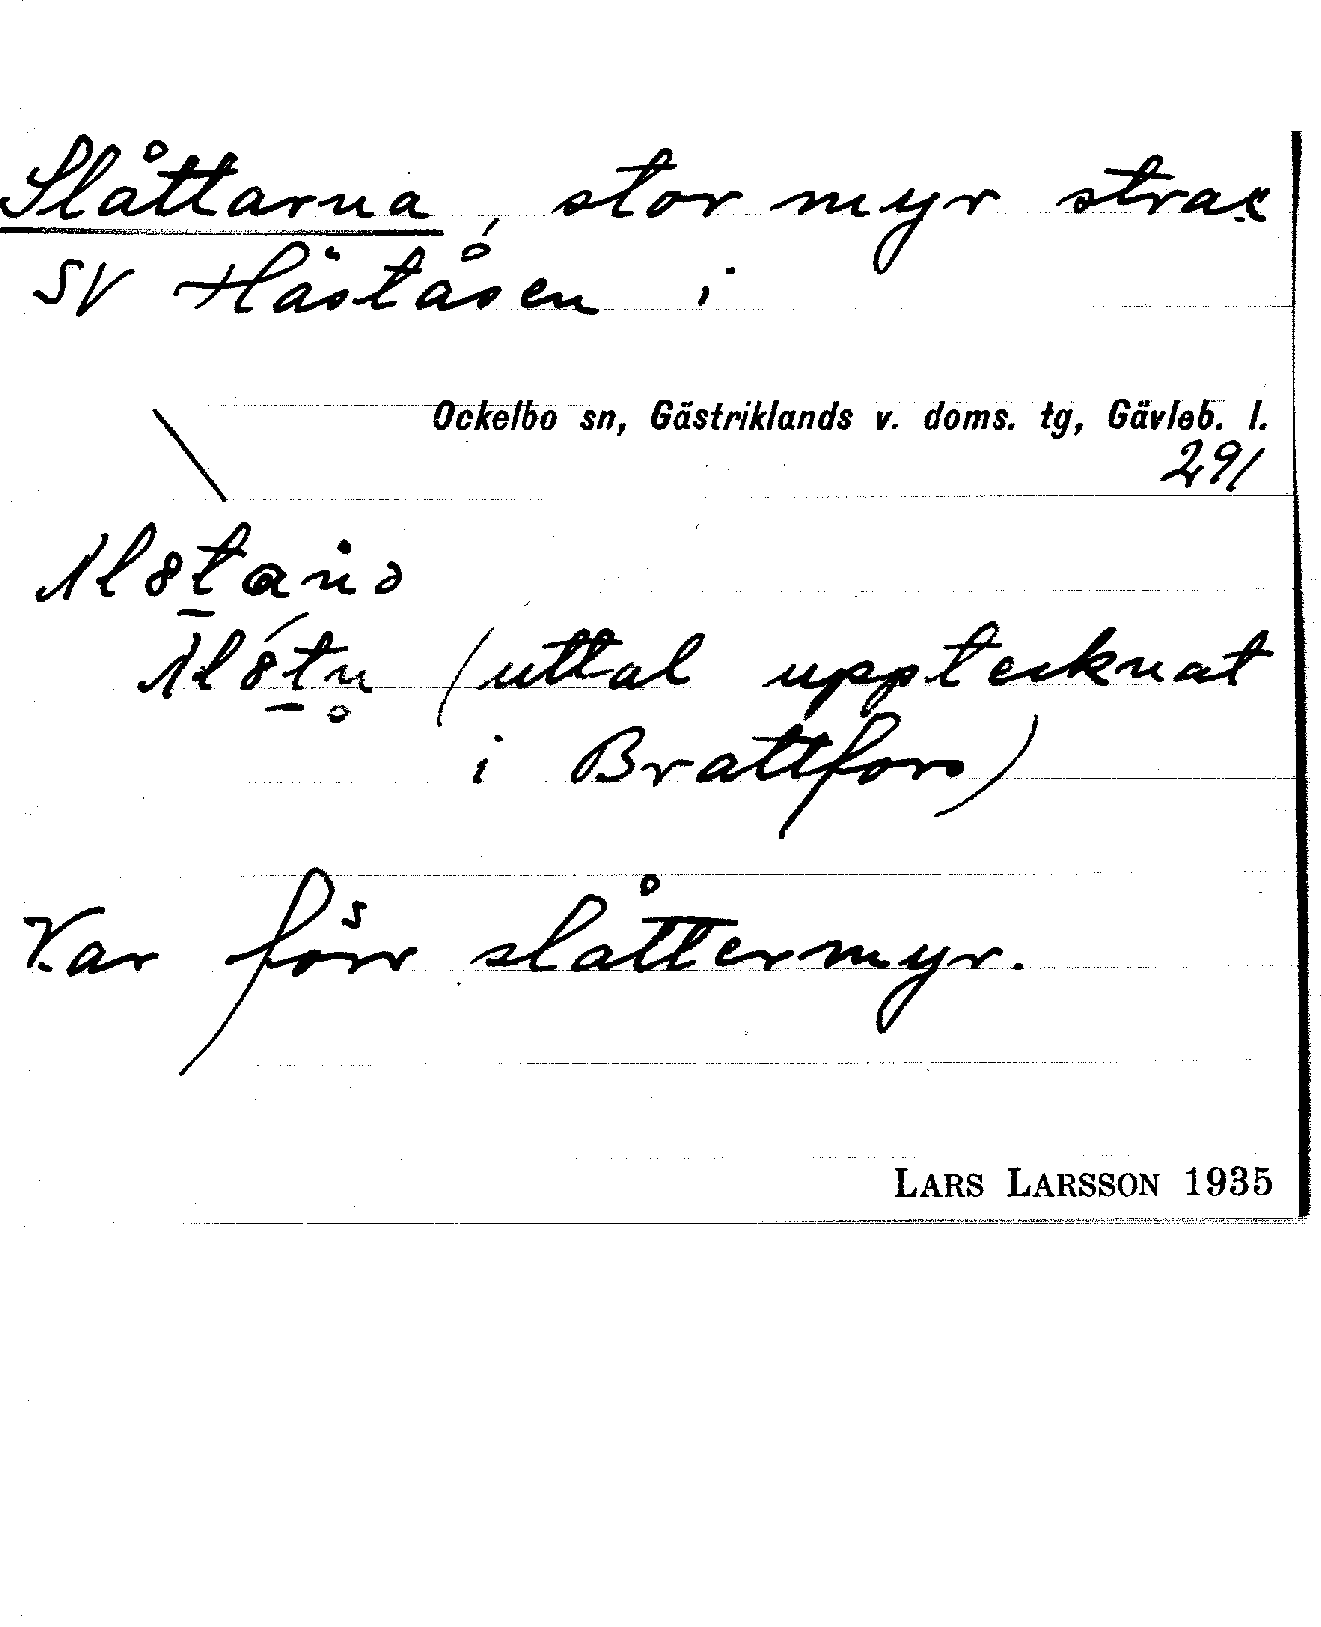 Slåttarna, stor myr strax
SV Häståsen i
Ockelbo sn, Gästriklands v. doms. tg, Gävleb. l.
291
(uttal upptecknat
i Brattfors)
Var förr slåttermyr.
LARS LARSSON 1935